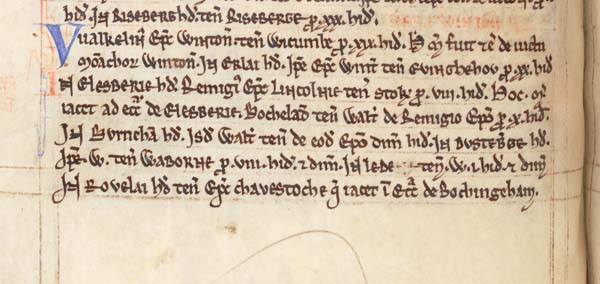 hid̄. In Riseberḡ hd̄. ten̄ Riseberge p̱ xxx. hid̄.
Vualkelinꝰ Ep̄c Winton̄. ten̄ Wicumbe p̱ xxx. hid̄. H̄ ꝯ̄ fuit ⁊ ē de uictu
monachoꝝ Winton̄. In Erlai hd̄. Ipse Ep̄c Wint̄ ten̄ Evinghehov p̱ xx. hid̄
In Elesberie hd̄ Remigiꝰ Ep̄c Lincolnie ten̄ Stoh p̱ viii. hid̄. Hoc. ꝯ̄
iacet ad ecc̄ā de Elesberie. Bochelad̄ ten̄ Walt̄ de Remigio Ep̄o p̱ x. hid̄.
In Burncha hd̄. Isd̄ Walt̄ ten̄ de eod̄ Ep̄o dim̄ hid̄. In Dustenbḡe hd̄.
Ipse. W. ten̄ Waborne p̱ viii. hid̄ ⁊ dim̄. In Lede ten̄. W. i. hid̄ ⁊ dim̄
In Rovelai hd̄ ten̄ Ep̄c Chavestoche q̄ iacet ī Ecc̄ā de Bochingeham.